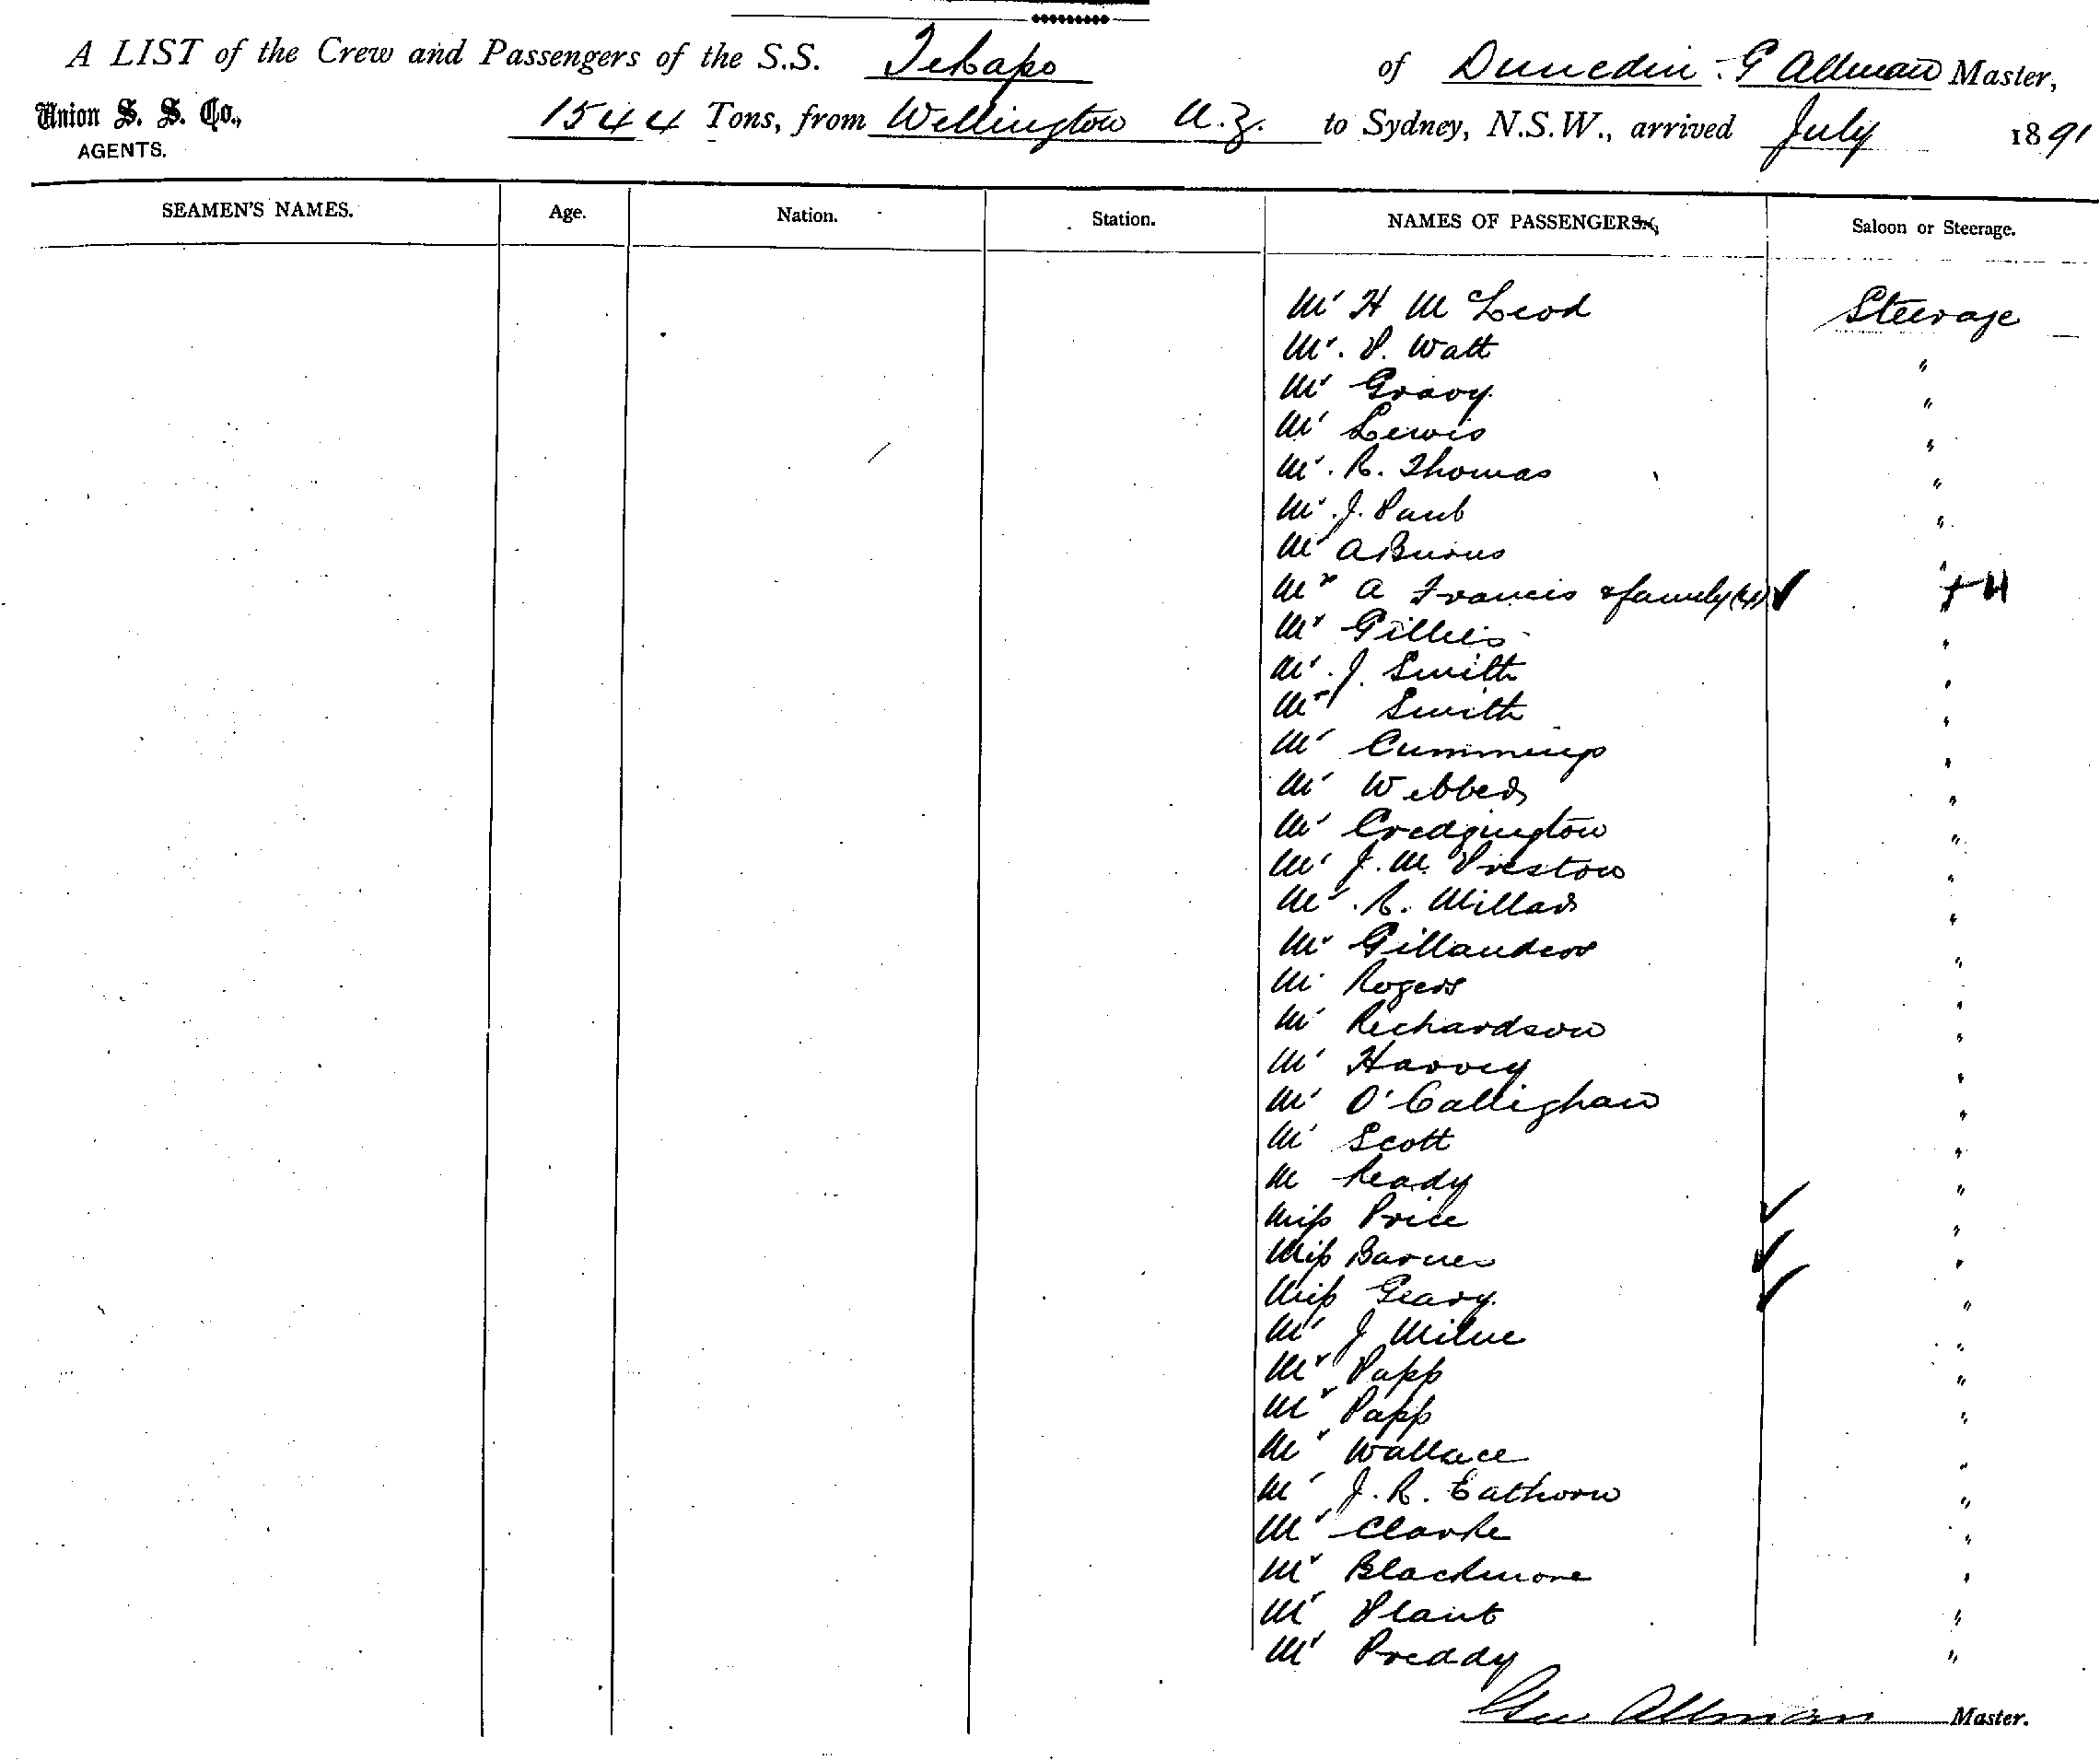 A LIST of the Crew and Passengers of the S.S. Tekapo of Dunedin . G Allman Master,
Union S. S. Co.,
AGENTS.
1544 Tons, from Wellington N.Z. to Sydney, N.S.W., arrived July 1891
SEAMEN'S NAMES. Age. Nation. Station. NAMES OF PASSENGERS. Saloon or Steerage.
Mr H McLeod Steerage
Mr. P. Watt "
Mr Gravy "
Mr Lewis "
Mr. R. Thomas "
Mr. J. Paul "
Mr A Burns "
Mr A Francis & family (4) ✓ + 4
Mr Gillies "
Mr. J. Smith "
Mr Smith "
Mr Cummings "
Mr Webber "
Mr Credgington "
Mr J. M. Preston "
Mr. R. Millar "
Mr Gillanders "
Mr Rogers "
Mr Richardson "
Mr Harvey "
Mr O'Callighan "
Mr Scott "
Mr Ready "
Miss Price ✓ "
Miss Barnes ✓ "
Miss Geary ✓ "
Mr J Milne "
Mr Papp "
Mr Papp "
Mr Wallace "
Mr J. R. Eathorn "
Mr Clarke "
Mr Blackmore "
Mr Plant "
Mr Preddy "
Geo Allman Master.